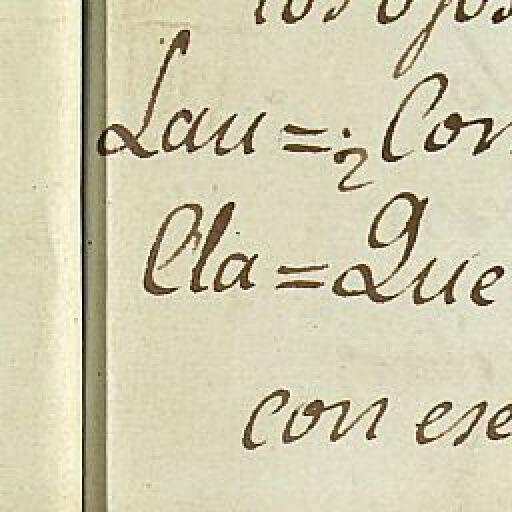 los ojos
Lau = ¿Con
Cla = Que
con ese